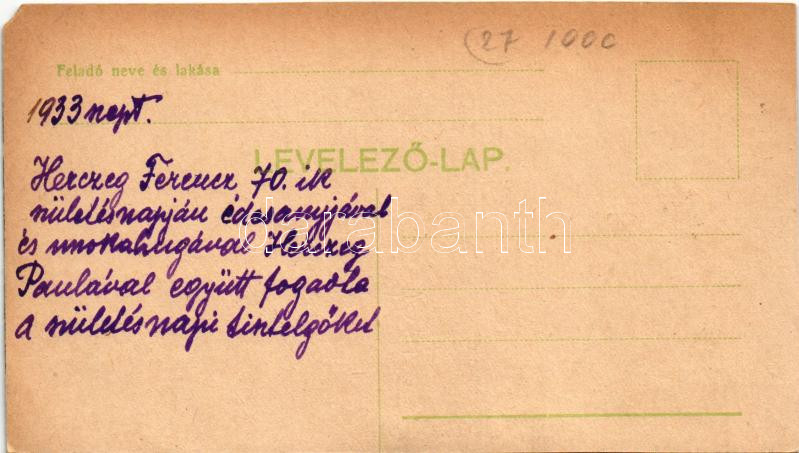 27 1000
Feladó neve és lakása
1933 szept.
LEVELEZŐ-LAP.
Herczeg Ferencz 70. ik
születésnapján édesanyjával
és unokahugával Herczeg
Paulával együtt fogadta
a születésnapi tisztelgőket
darabanth